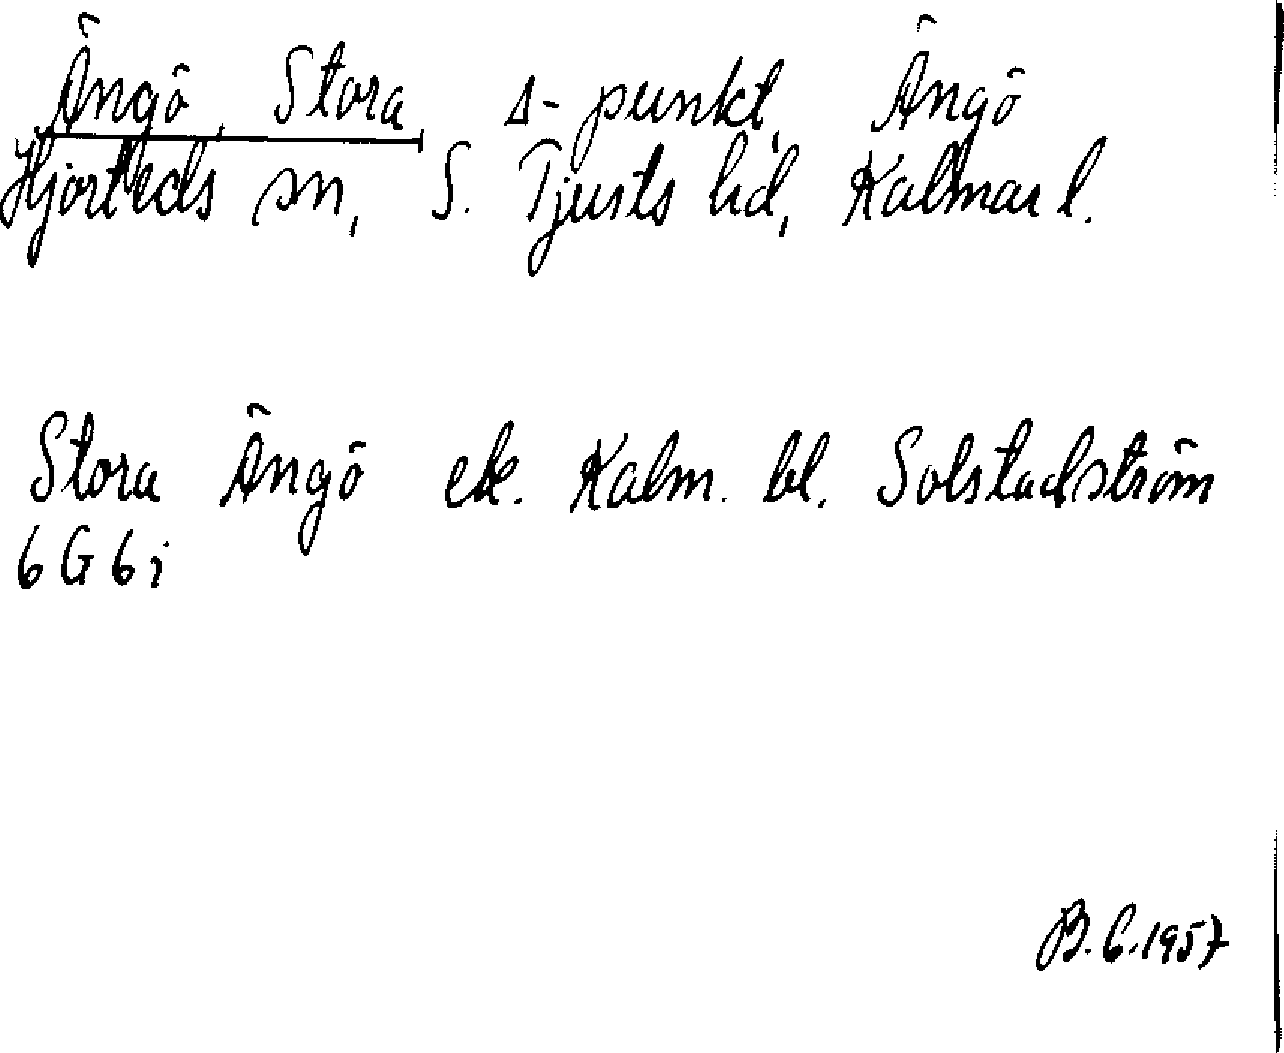 Ängö, Stora Δ-punkt, Ängö
Hjorteds sn, S. Tjusts hd, Kalmar l.
Stora Ängö ek. Kalm. bl. Solstadström
6G6i
B.C.1957